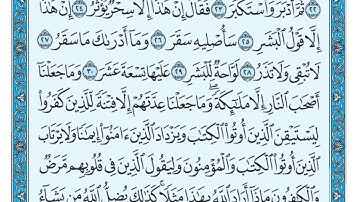 ٢٢ ثُمَّ أَدْبَرَ وَٱسْتَكْبَرَ ٢٣ فَقَالَ إِنْ هَٰذَآ إِلَّا سِحْرٌ يُؤْثَرُ ٢٤ إِنْ هَٰذَآ
إِلَّا قَوْلُ ٱلْبَشَرِ ٢٥ سَأُصْلِيهِ سَقَرَ ٢٦ وَمَآ أَدْرَىٰكَ مَا سَقَرُ ٢٧
لَا تُبْقِى وَلَا تَذَرُ ٢٨ لَوَّاحَةٌ لِّلْبَشَرِ ٢٩ عَلَيْهَا تِسْعَةَ عَشَرَ ٣٠ وَمَا جَعَلْنَآ
أَصْحَٰبَ ٱلنَّارِ إِلَّا مَلَٰٓئِكَةً ۙ وَمَا جَعَلْنَا عِدَّتَهُمْ إِلَّا فِتْنَةً لِّلَّذِينَ كَفَرُوا۟
لِيَسْتَيْقِنَ ٱلَّذِينَ أُوتُوا۟ ٱلْكِتَٰبَ وَيَزْدَادَ ٱلَّذِينَ ءَامَنُوٓا۟ إِيمَٰنًا ۙ وَلَا يَرْتَابَ
ٱلَّذِينَ أُوتُوا۟ ٱلْكِتَٰبَ وَٱلْمُؤْمِنُونَ ۙ وَلِيَقُولَ ٱلَّذِينَ فِى قُلُوبِهِم مَّرَضٌ
وَٱلْكَٰفِرُونَ مَاذَآ أَرَادَ ٱللَّهُ بِهَٰذَا مَثَلًا ۚ كَذَٰلِكَ يُضِلُّ ٱللَّهُ مَن يَشَآءُ